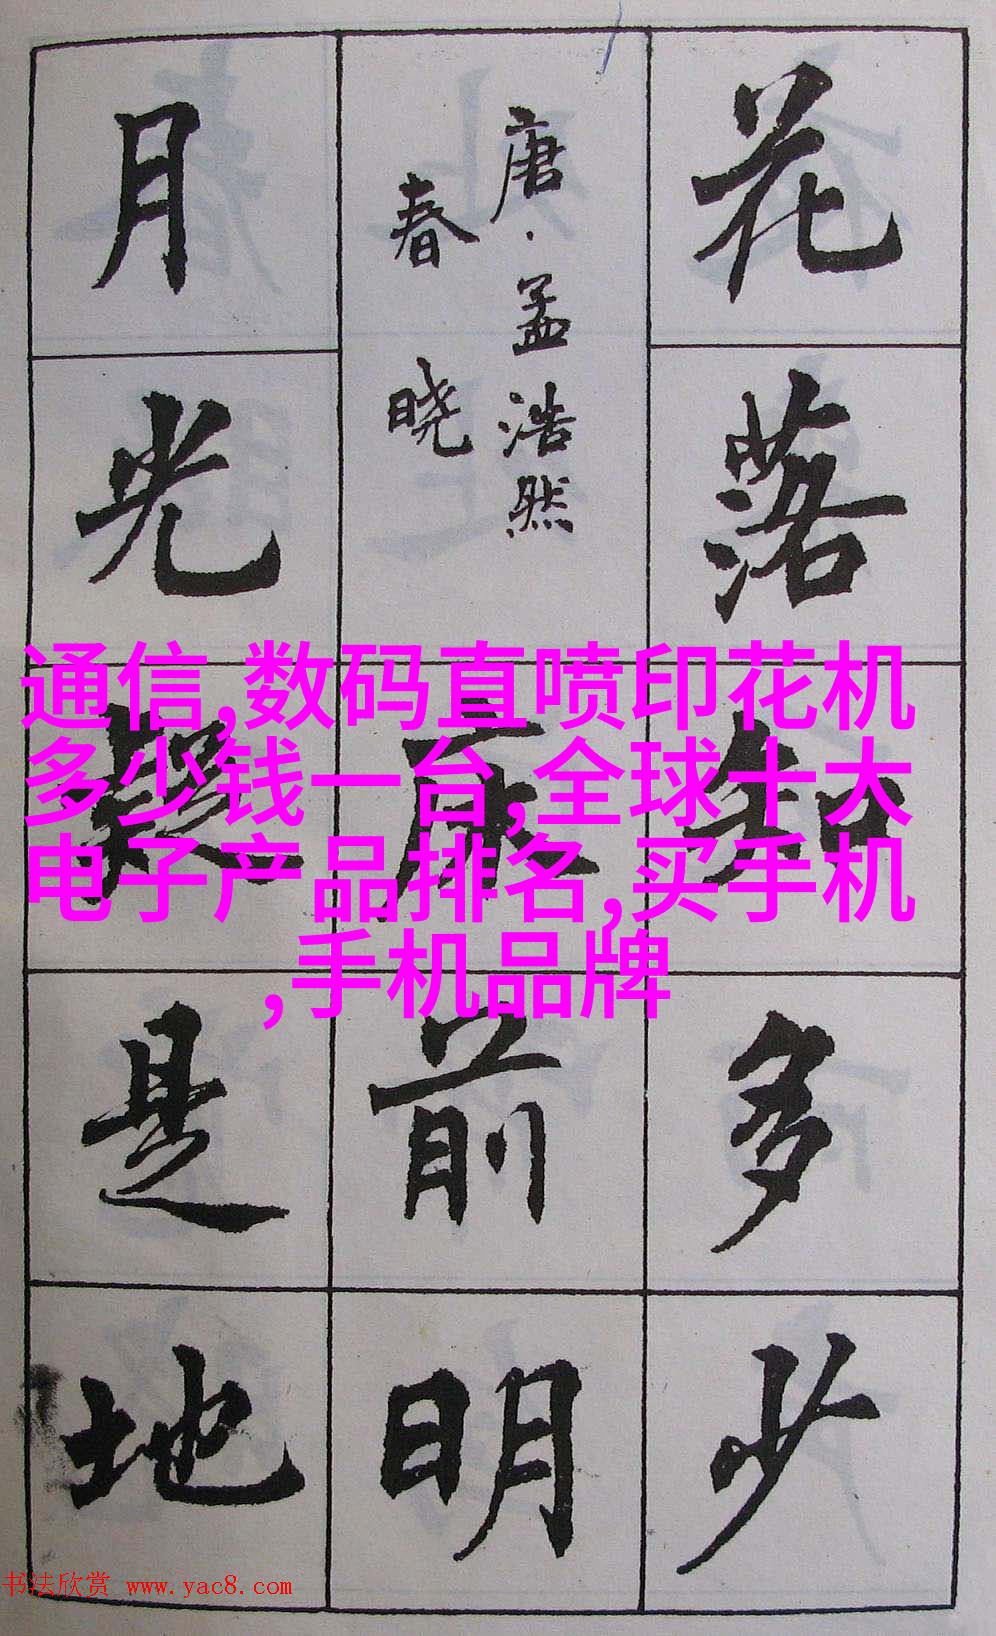 花落知多少
唐·孟浩然
春晓
床前明
月光疑是地
通信,数码直喷印花机
多少钱一台,全球十大
电子产品排名,买手机
,手机品牌
书法欣赏 www.yac8.com